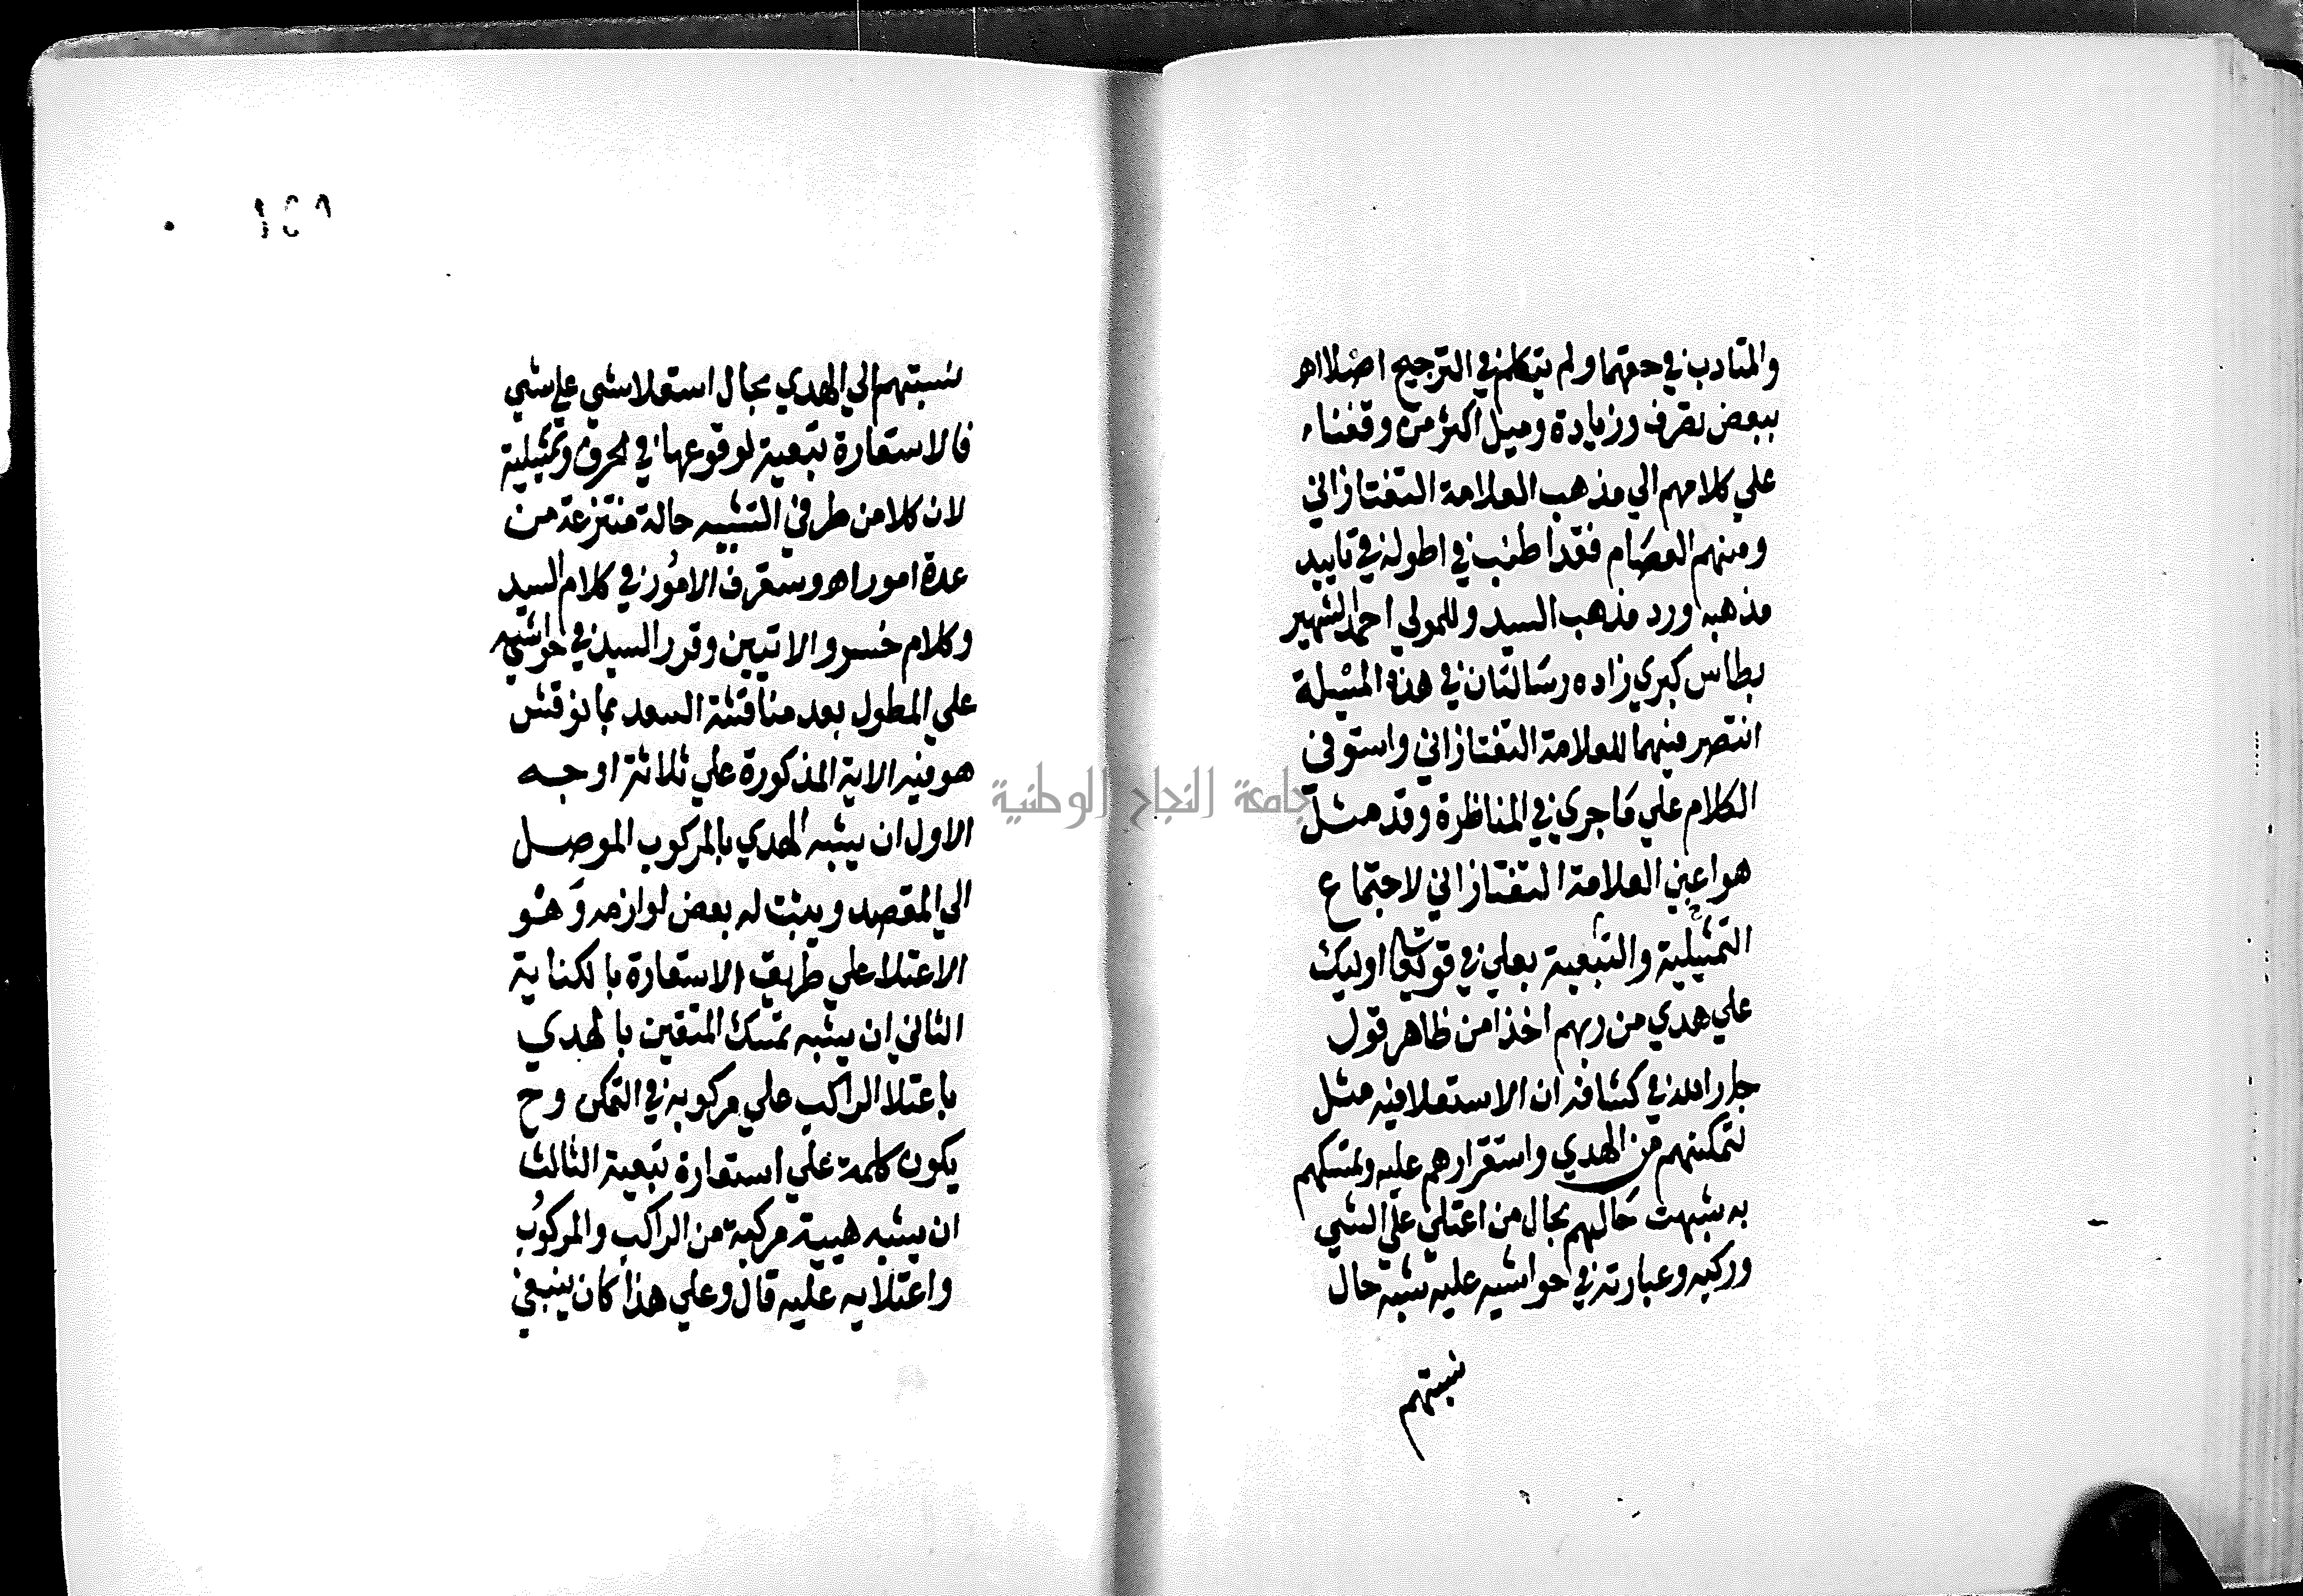 والمتادب في حقهما ولم يتكلم في الترجيح اصلا اه
ببعض تصرف وزيادة وميل اكثر من وقفنا
علي كلامهم الي مذهب العلامة التفتازاني
ومنهم العصام فقد اطنب في اطوله في تاييد
مذهبه ورد مذهب السيد وللمولي احمد الشهير
بطاس كبري زاده رسالتان في هذه المسيلة
انتصر فيهما للعلامة التفتازاني واستوفى
الكلام علي ما جري في المناظرة وقد مثل
هو اعني العلامة التفتازاني لاجتماع
التمثيلية والتبعية بعلي في قوله تعالى اوليك
علي هدي من ربهم اخذا من ظاهر قول
جار الله في كشافه ان الاستعلا فيه مثل
لتمكنهم من الهدي واستقرارهم عليه وتمسكهم
به شبهت حالهم بحال من اعتلى على الشي
وركبه وعبارته في حواشيه عليه شبه حال
نسبتهم
١٥٩
نسبتهم الي الهدي بحال استعلا شي علي شي
فالاستعارة تبعية لوقوعها في الحرف وتمثيلية
لان كلا من طرفي التشبيه حالة منتزعة من
عدة امور اه وستعرف الامور في كلام السيد
وكلام خسرو الاتيين وقرر السيد في حواشيه
علي المطول بعد مناقشة السعد بما نوقش
هو فيه الاية المذكورة علي ثلاثة اوجه
الاول ان يشبه الهدي بالمركوب الموصل
الي المقصد ويثبت له بعض لوازمه وهو
الاعتلا علي طريق الاستعارة بالكناية
الثاني ان يشبه تمسك المتقين بالهدي
باعتلا الراكب علي مركوبه في التمكن وح
يكون كلمة علي استعارة تبعية الثالث
ان يشبه هيية مركبة من الراكب والمركوب
واعتلايه عليه قال وعلي هذا كان ينبغي
جامعة النجاح الوطنية